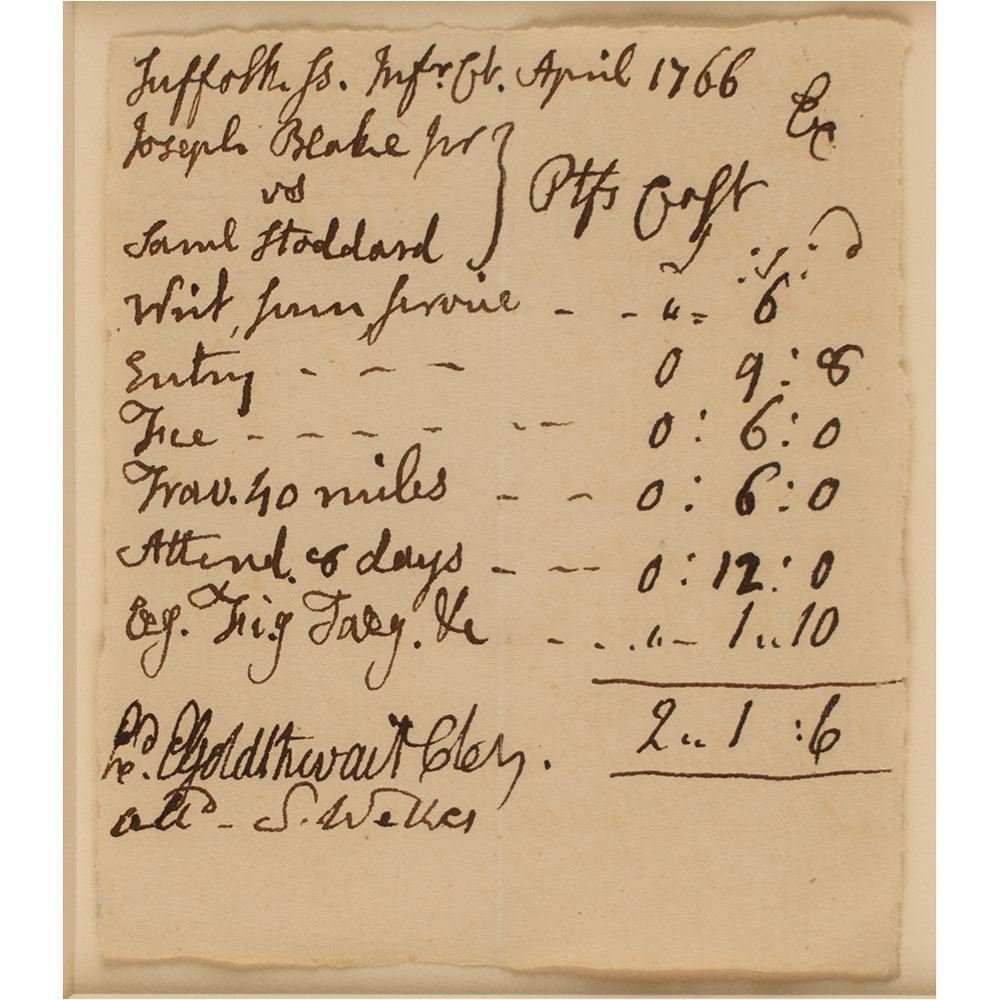 Suffolk Ss. Infr. Ct. April 1766
Ex
Joseph Blake Jnr
vs
Saml Stoddard
Ptfs Cost
Writ, Sum, Service - - " = 6
Entry - - - 0 9:8
Fee - - - - - - 0:6:0
Trav. 40 miles - - 0:6:0
Attend. 8 days - - - 0:12:0
Fig &c - . . " - 1 " 10
2 " 1 :6
Goldthwait Cler.
alld - S. Welles